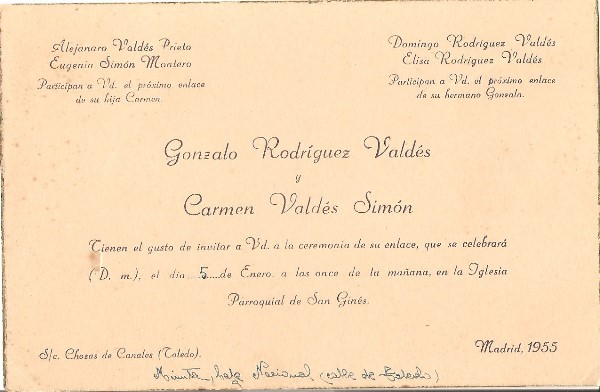 Alejandro Valdés Prieto
Eugenia Simón Montero
Participan a Vd. el próximo enlace
de su hija Carmen.
Domingo Rodríguez Valdés
Elisa Rodríguez Valdés
Participan a Vd. el próximo enlace
de su hermano Gonzalo.
Gonzalo Rodríguez Valdés
y
Carmen Valdés Simón
Tienen el gusto de invitar a Vd. a la ceremonia de su enlace, que se celebrará
(D. m.), el día 5 de Enero a las once de la mañana, en la Iglesia
Parroquial de San Ginés.
S/c. Chozas de Canales (Toledo).
Madrid, 1955
Nacional (calle de Toledo)